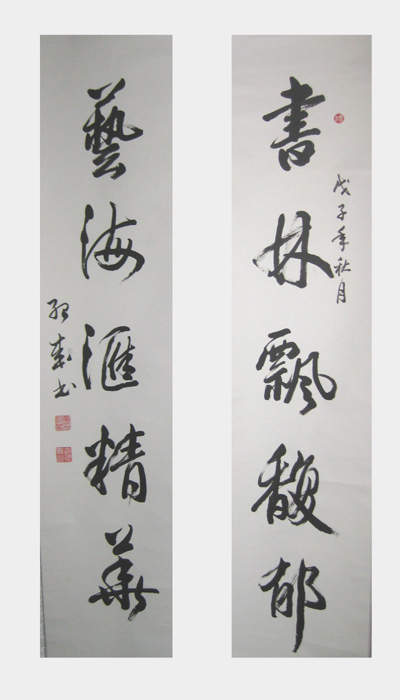 戊子年秋月
書林飄馥郁
藝海滙精華
书